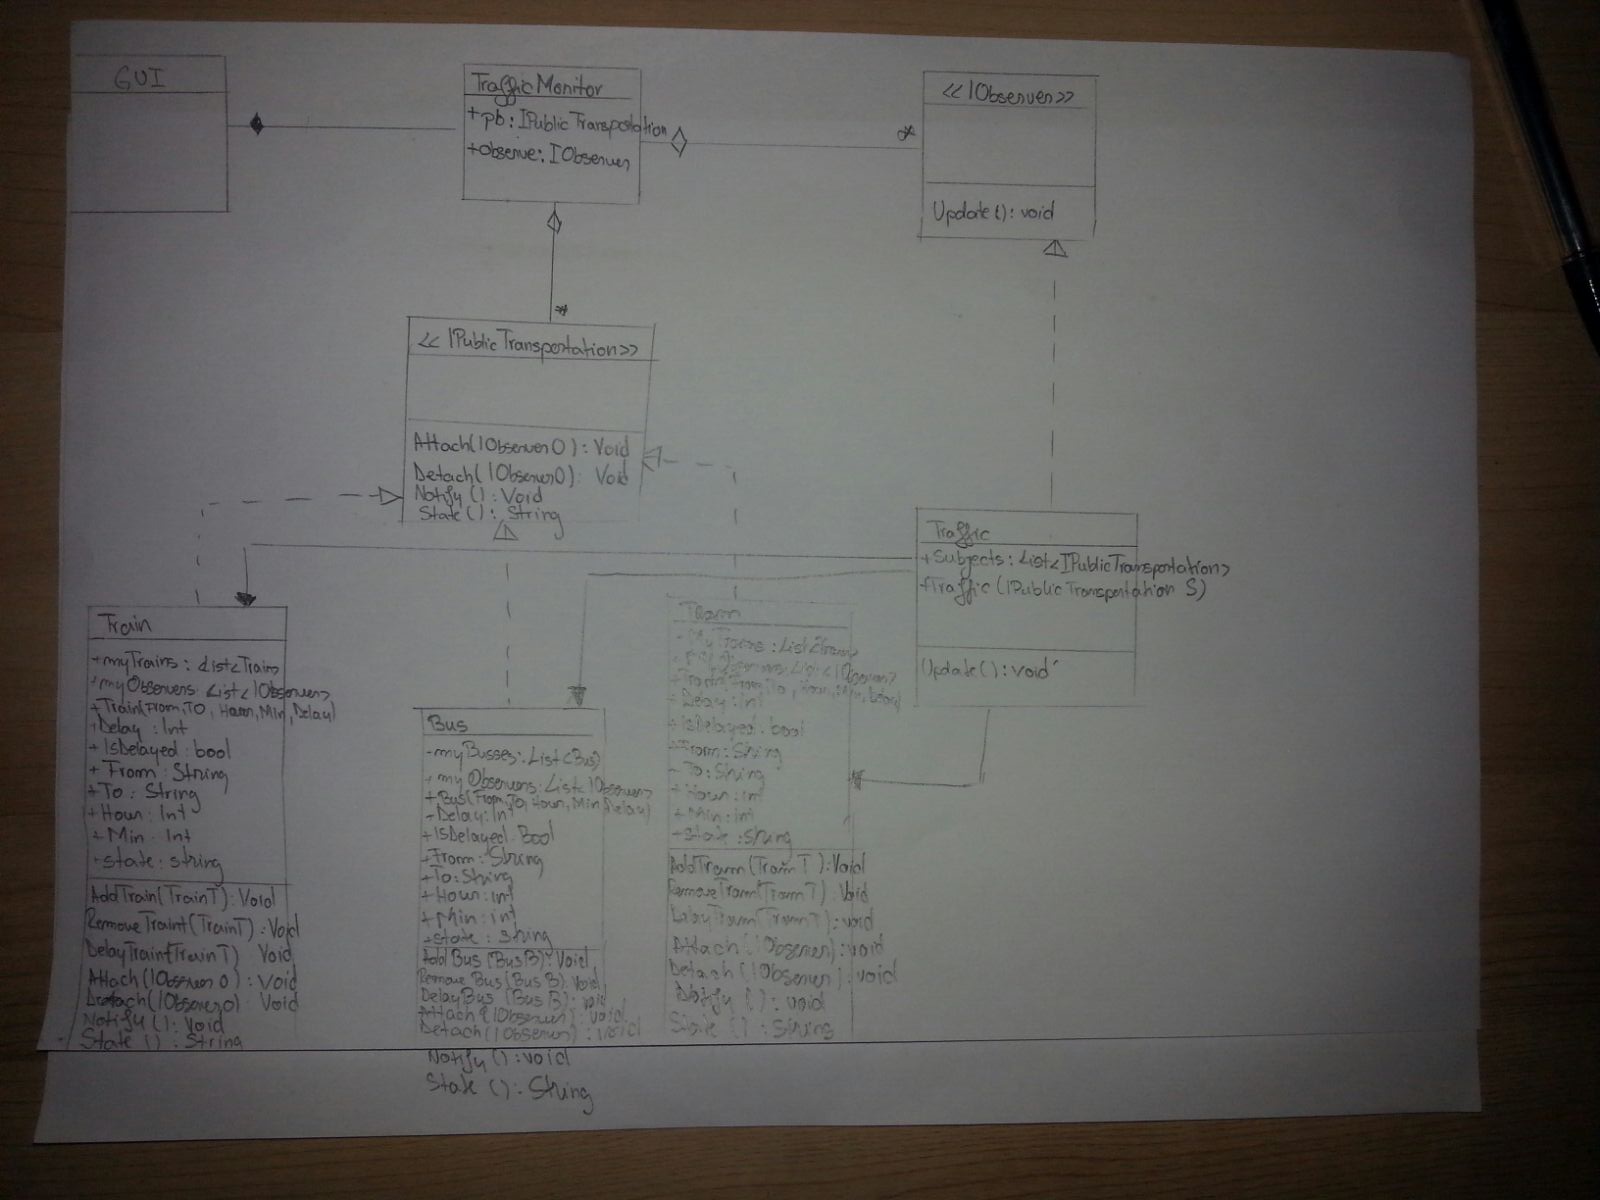 GUI
TrafficMonitor
+pb: IPublicTranspostation
+observe: IObserver
<<IObserver>>
*
Update(): void
*
<<IPublicTranspertation>>
Attach(IObserver O): Void
Detach(IObserver O): Void
Notify(): Void
State(): String
Traffic
+Subjects: List<IPublicTranspertation>
+Traffic(IPublicTranspertation S)
Update(): void
Train
+myTrains: List<Train>
+myObservers: List<IObserver>
+Train(From, TO, Hour, Min, Delay)
+Delay: Int
+IsDelayed: bool
+From: String
+To: String
+Hour: Int
+Min: Int
+state: string
AddTrain(TrainT): Void
RemoveTraint(TrainT): Void
DelayTraint(TrainT) Void
Attach(IObserver O): Void
Detach(IObserver O): Void
Notify(): Void
State(): String
Bus
-myBusses: List<Bus>
+myObservers: List<IObserver>
+Bus(From, To, Hour, Min, Delay)
-Delay: Int
+IsDelayed: Bool
+From: String
+To: String
+Hour: int
+Min: int
+state: string
Add Bus(Bus B): Void
Remove Bus(Bus B): Void
DelayBus (Bus B): void
Attach(IObserver): void
Detach(IObserver): void
Notify(): void
State(): String
Tram
-MyTrams: List<Tram>
Observers: List<IObserver>
+Tram(From, To, Hour, Min, Delay)
+Delay: Int
+IsDelayed: bool
+From: String
-To: String
+Hour: int
+Min: int
+state: string
AddTram(Tram T): Void
RemoveTram(Tram T): Void
DelayTram(Tram T): void
Attach(IObserver): void
Detach(IObserver): void
Notify(): void
State(): String